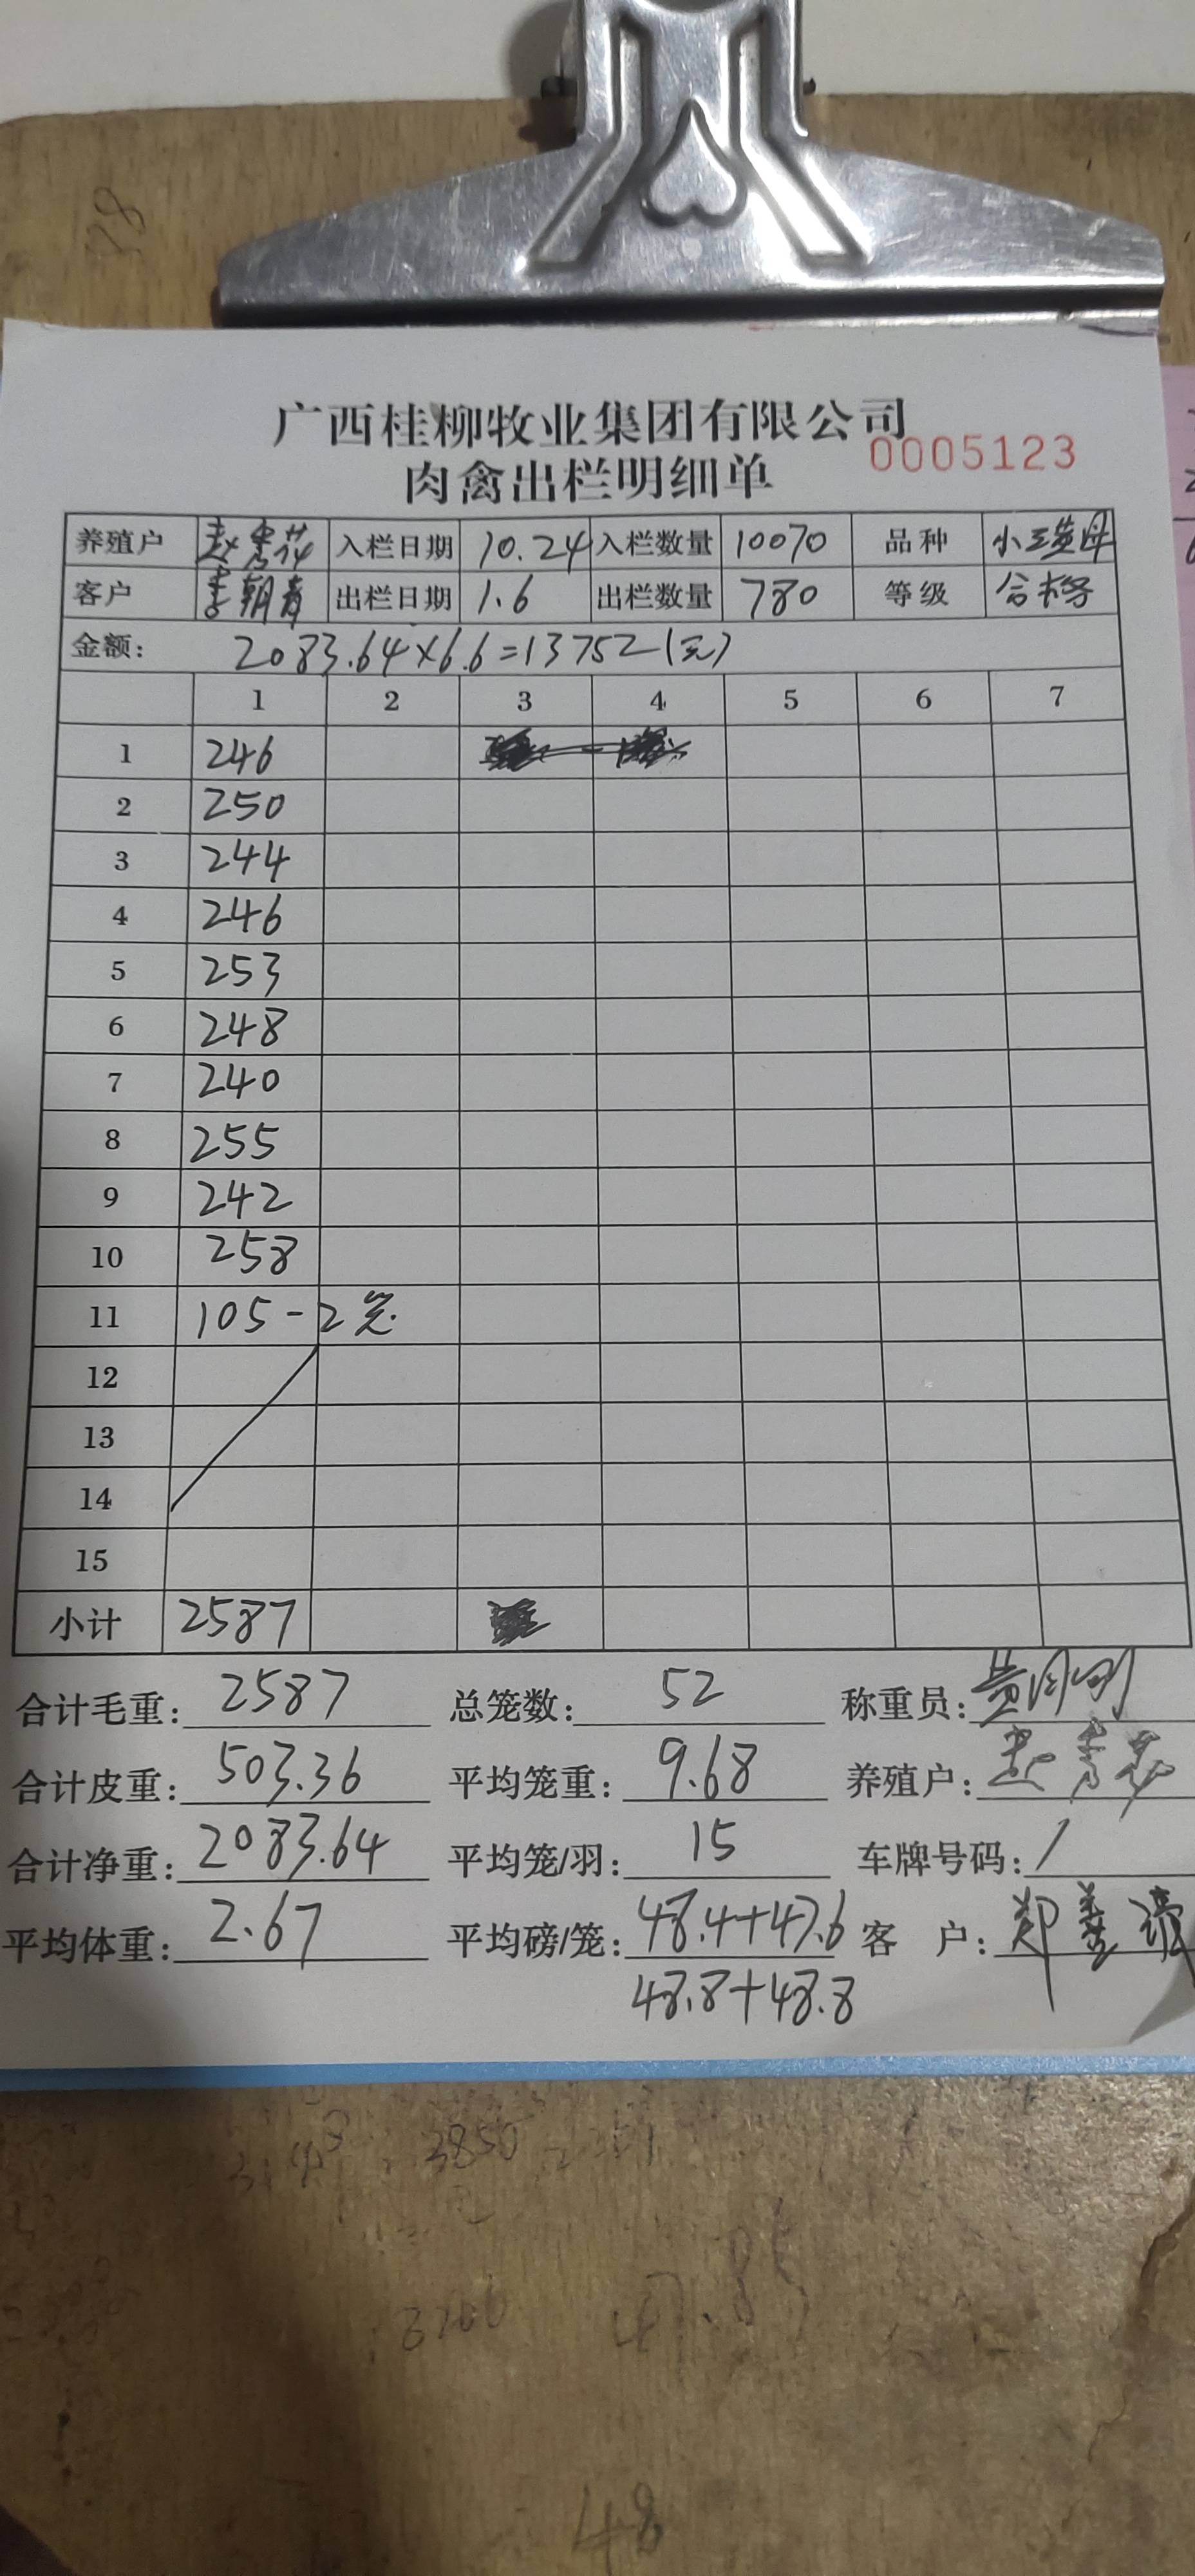 广西桂柳牧业集团有限公司
0005123
肉禽出栏明细单
养殖户 赵秀花 入栏日期 10.24 入栏数量 10070 品种 小三黄母
客户 李朝青 出栏日期 1.6 出栏数量 780 等级 合格
金额: 2083.64×6.6=13752(元)
1 2 3 4 5 6 7
1 246
2 250
3 244
4 246
5 253
6 248
7 240
8 255
9 242
10 258
11 105-2笼
12
13
14
15
小计 2587
合计毛重: 2587 总笼数: 52 称重员:
合计皮重: 503.36 平均笼重: 9.68 养殖户: 赵秀花
合计净重: 2083.64 平均笼/羽: 15 车牌号码: /
平均体重: 2.67 平均磅/笼: 48.4+47.6 客 户: 郑善
48.8+48.8
48